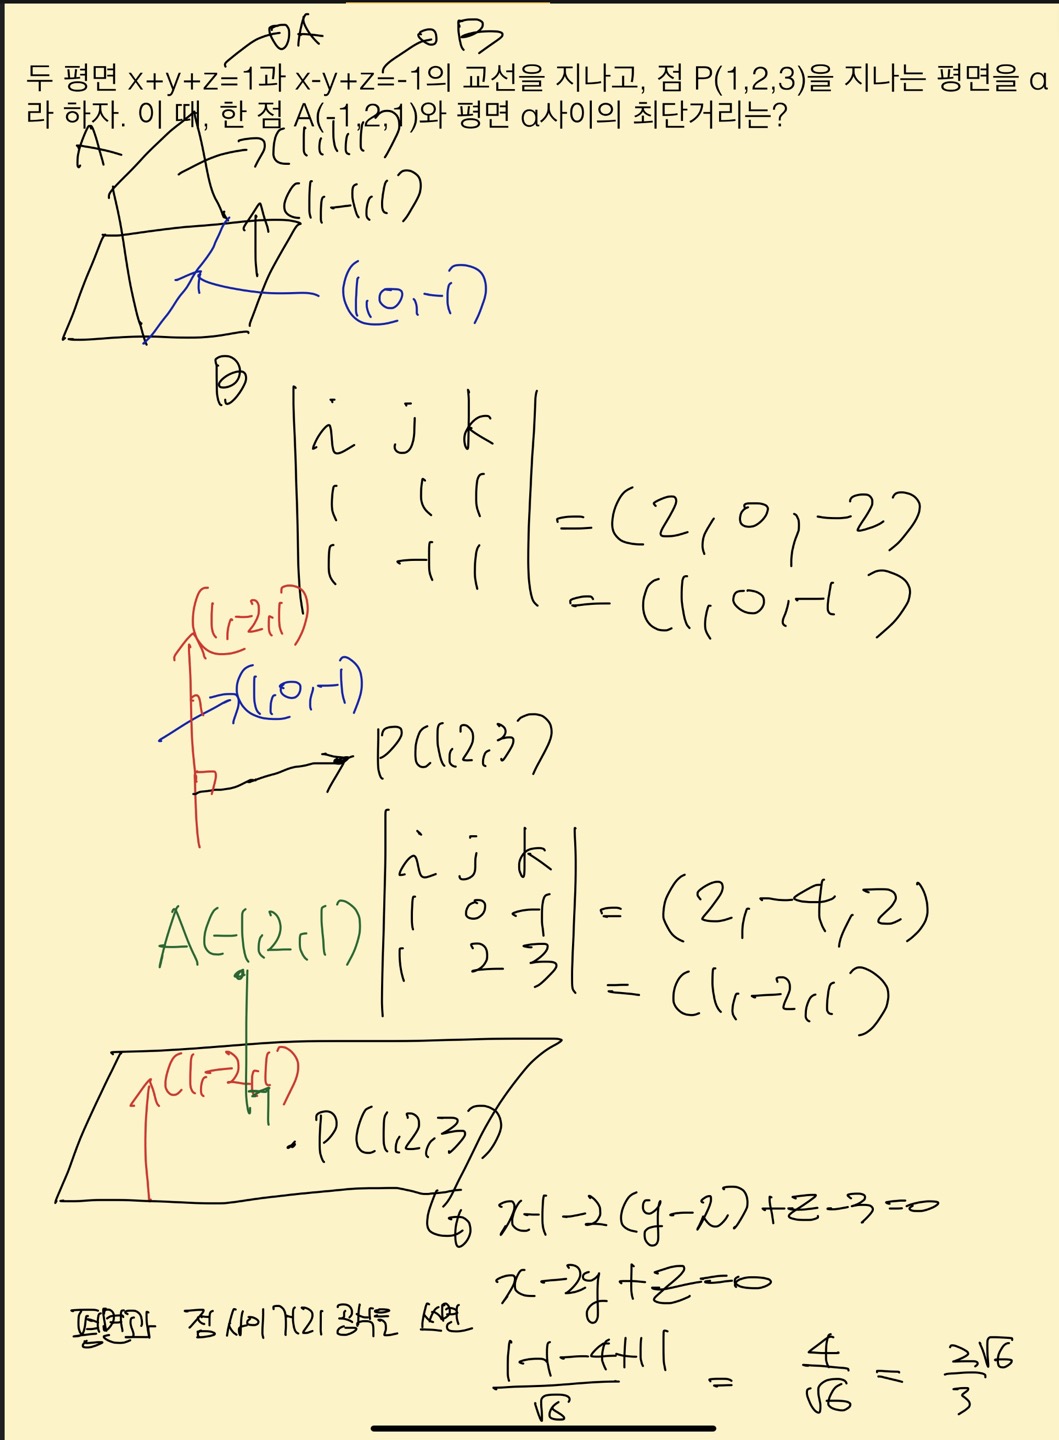 A
B
두 평면 x+y+z=1과 x-y+z=-1의 교선을 지나고, 점 P(1,2,3)을 지나는 평면을 α
라 하자. 이 때, 한 점 A(-1,2,1)와 평면 α사이의 최단거리는?
A
(1,1,1)
(1,-1,1)
(1,0,-1)
B
i j k
1 1 1
1 -1 1
= (2, 0, -2)
= (1, 0, -1)
(1,-2,1)
(1,0,-1)
P(1,2,3)
i j k
1 0 -1
1 2 3
= (2, -4, 2)
= (1, -2, 1)
A(-1,2,1)
(1,-2,1)
P(1,2,3)
x-1-2(y-2)+z-3=0
x-2y+z=0
평면과 점 사이 거리 공식을 쓰면
|-1-4+1| / √6 = 4/√6 = 2√6/3